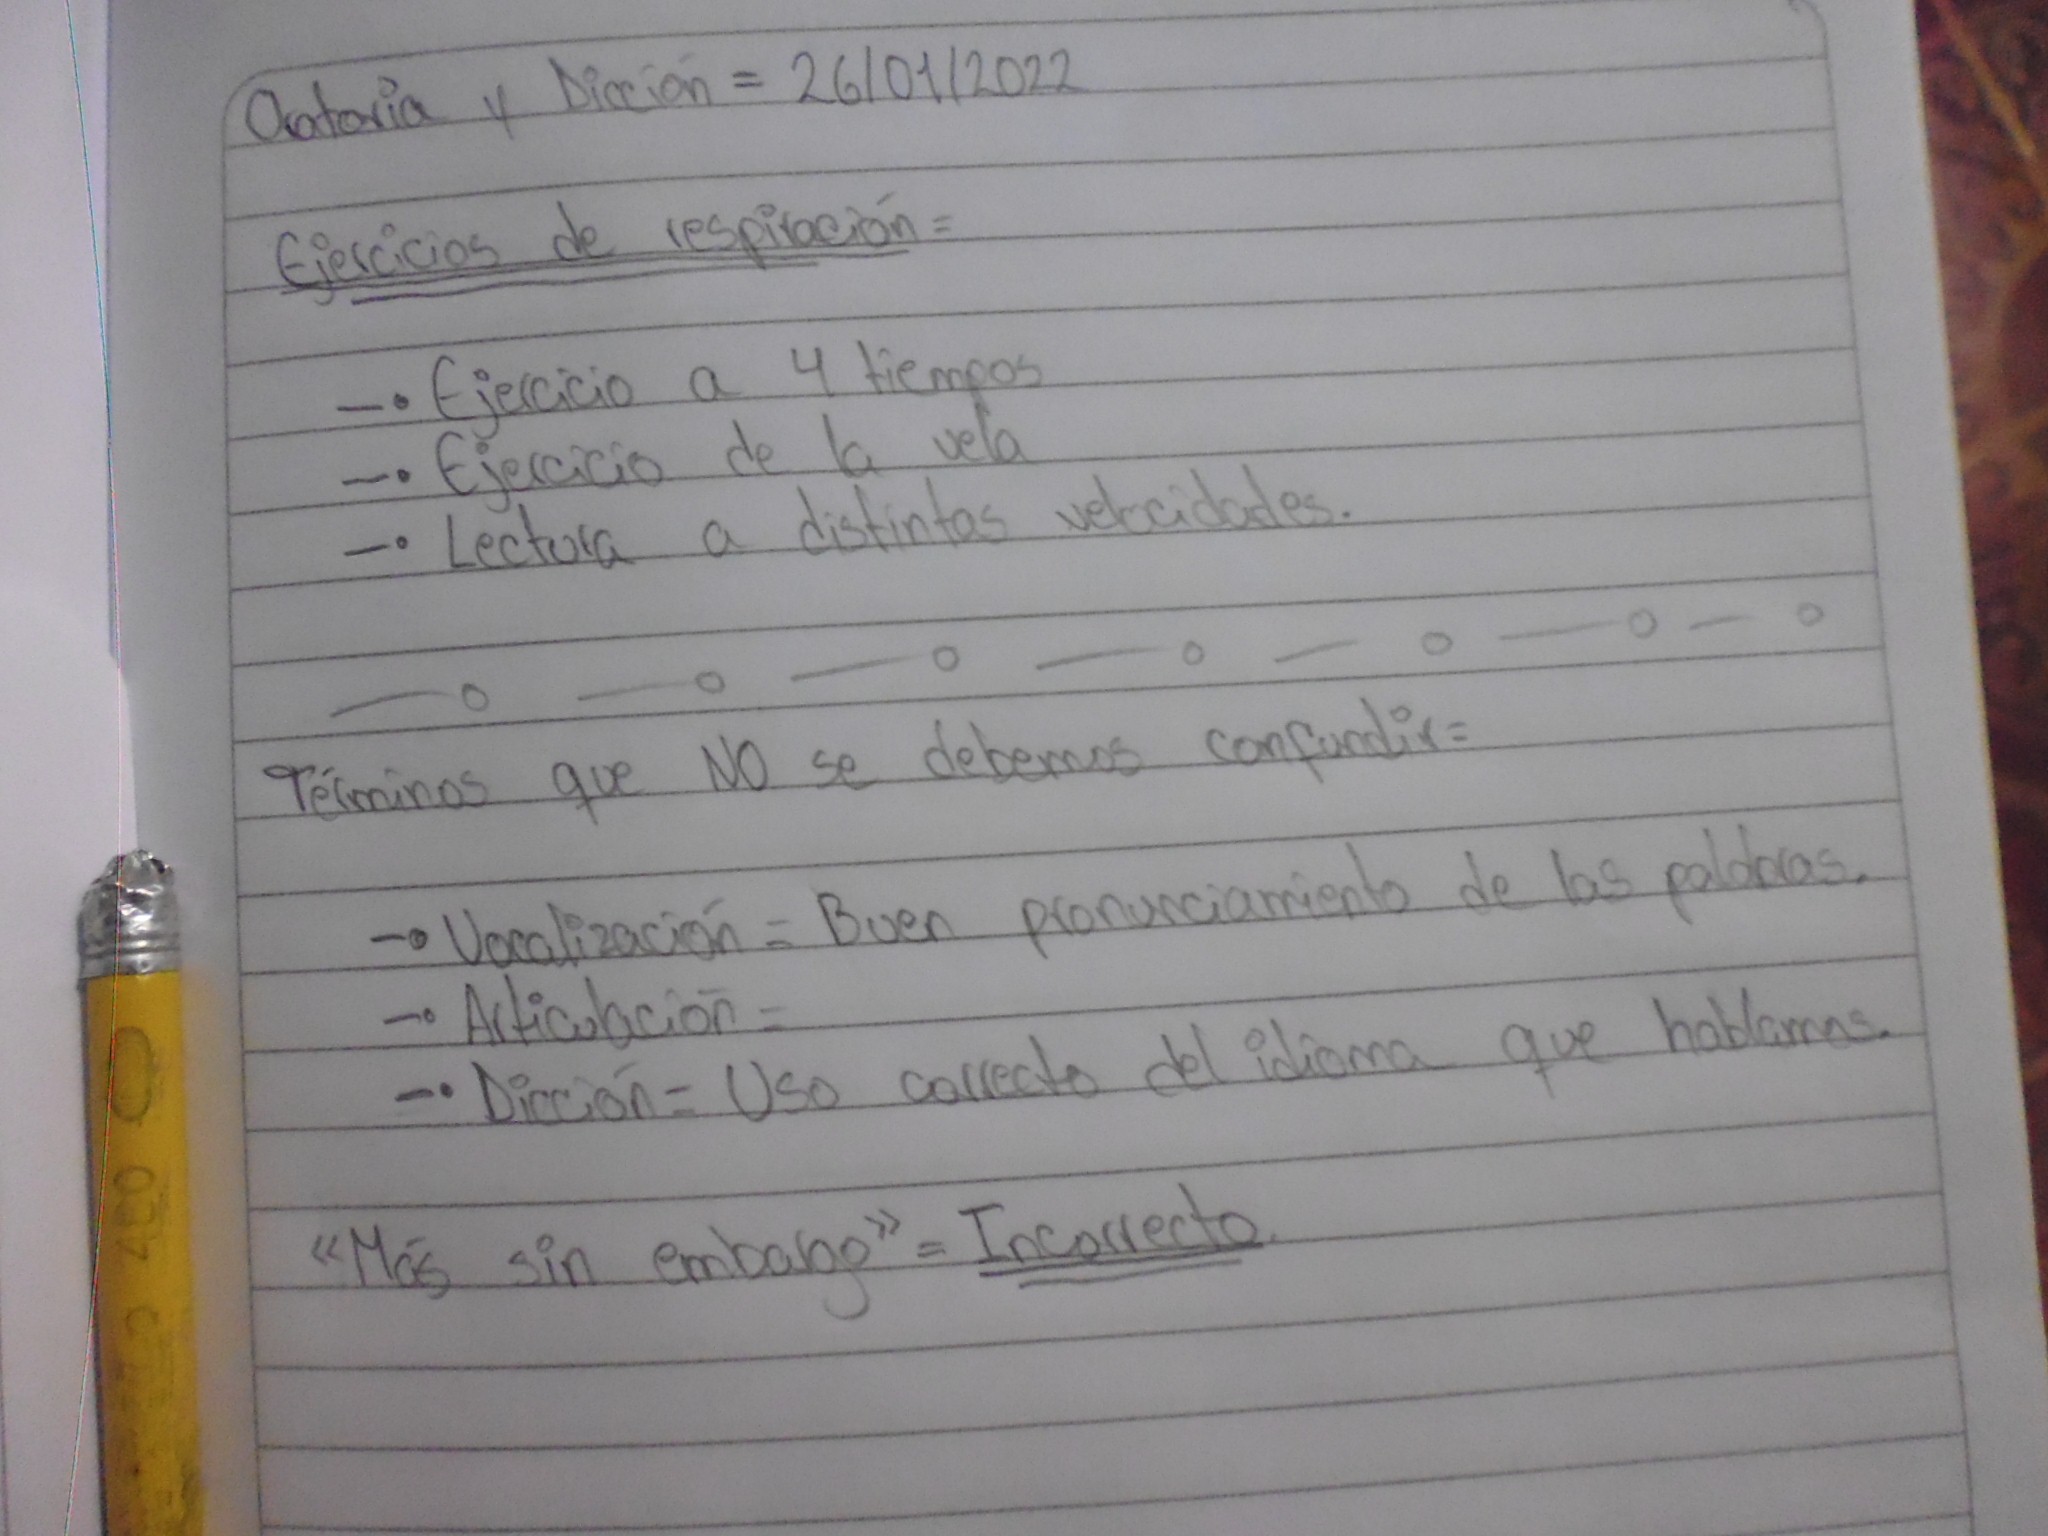 Oratoria y Dicción = 26/01/2022
Ejercicios de respiración =
—• Ejercicio a 4 tiempos
—• Ejercicio de la vela
—• Lectura a distintas velocidades.
Términos que NO se debemos confundir =
—• Vocalización = Buen pronunciamiento de las palabras.
—• Articulación =
—• Dicción = Uso correcto del idioma que hablamos.
«Más sin embargo» = Incorrecto.